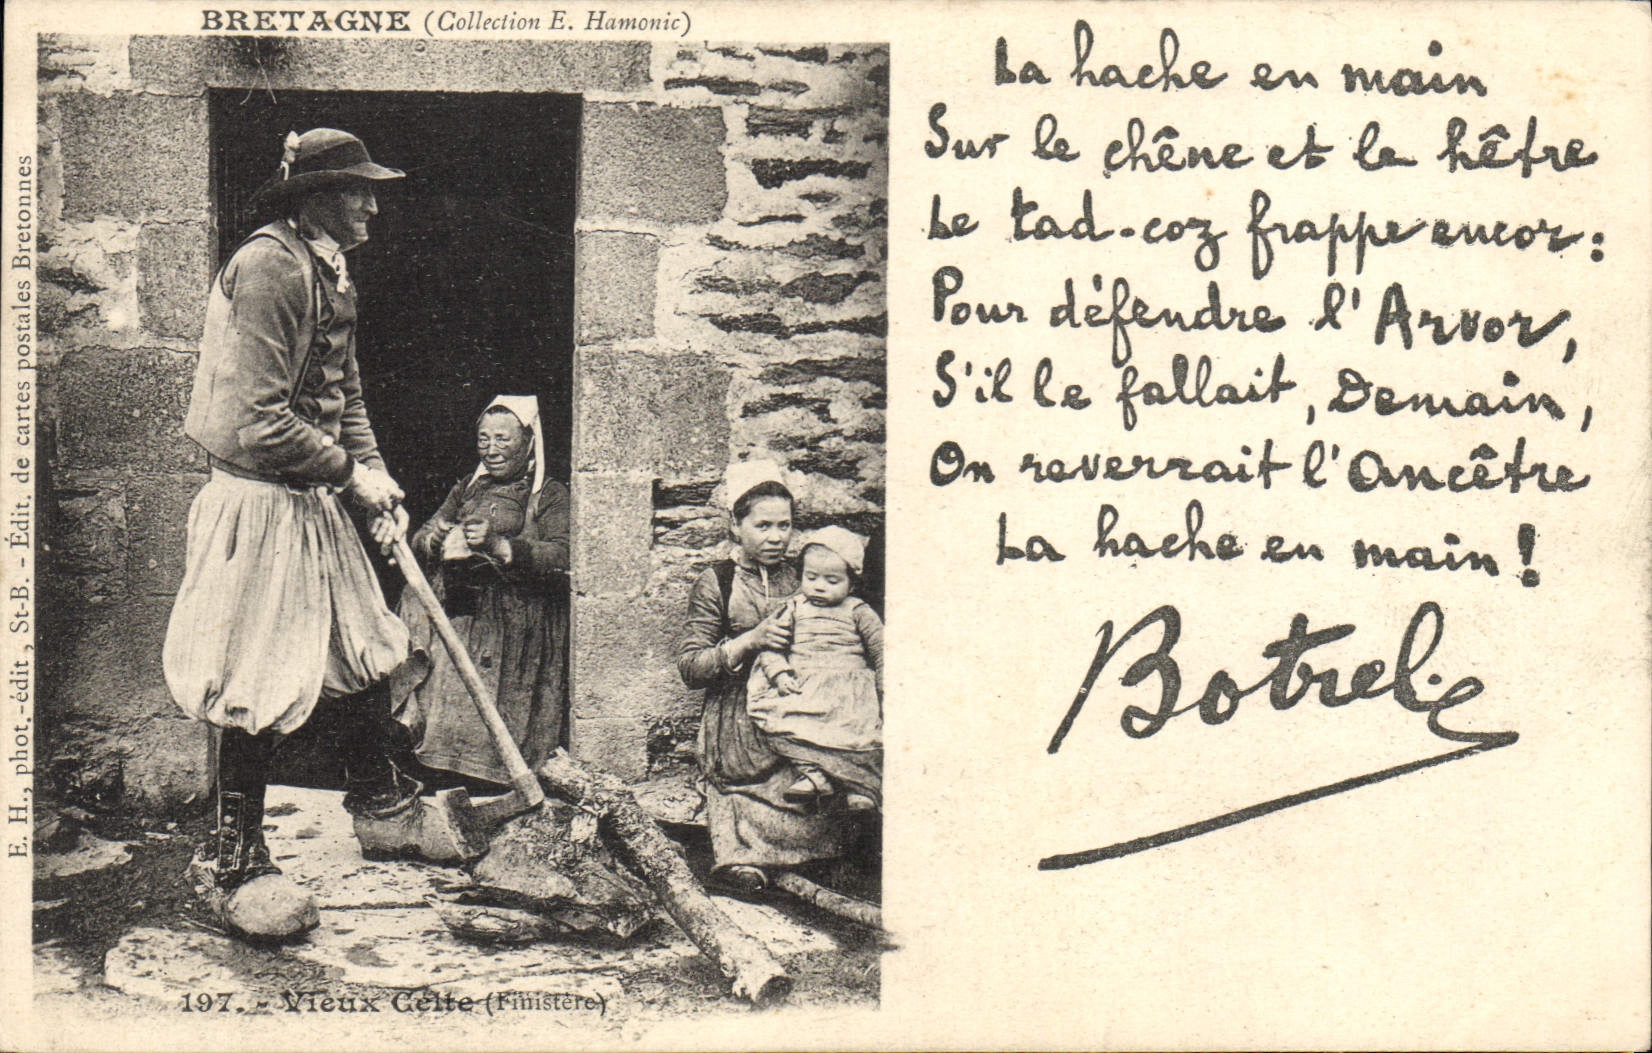 BRETAGNE (Collection E. Hamonic)
E. H., phot.-édit, St-B. - Édit. de cartes postales Bretonnes
197. - Vieux Celte (Finistère)
La hache en main
Sur le chêne et le hêtre
Le tad-coz frappe encor :
Pour défendre l'Arvor,
S'il le fallait, Demain,
On reverrait l'Ancêtre
La hache en main !
Botrel